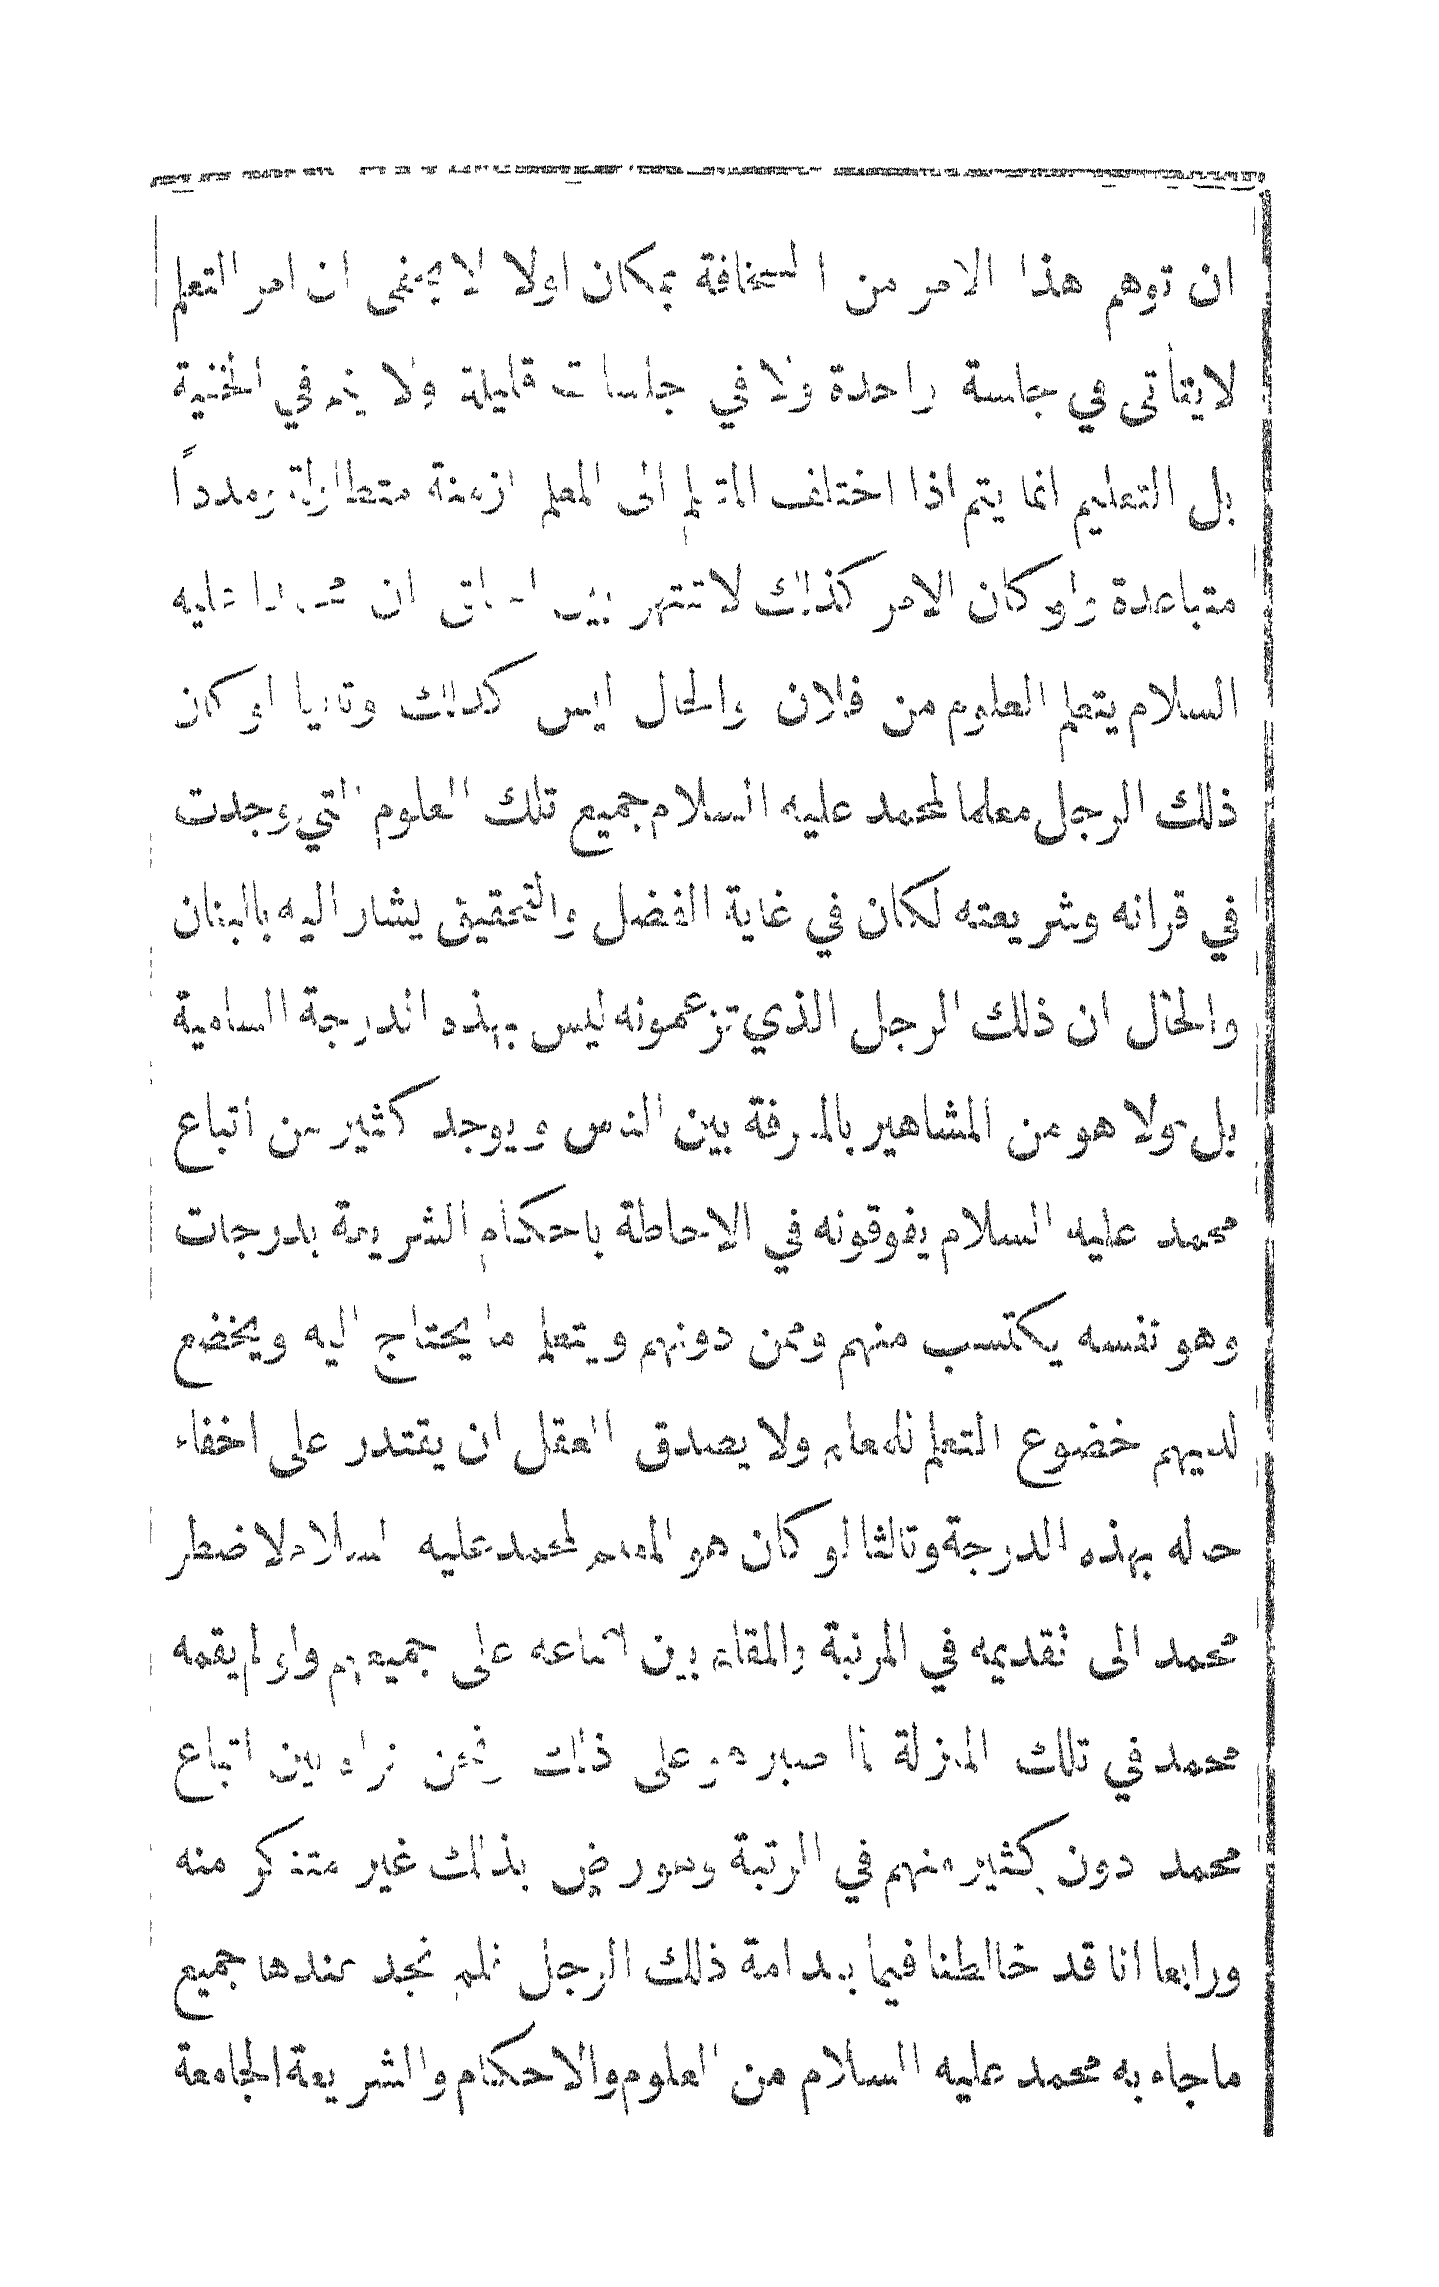 ان توهم هذا الامر من السخافة بمكان اولا لا يخفى ان امر التعلم
لايتأتى في جلسة واحدة ولا في جلسات قليلة ولا يتم في الخفية
بل التعليم انما يتم اذا اختلف المتعلم الى المعلم ازمنة متطاولة ومدداً
متباعدة ولو كان الامر كذلك لاشتهر بين الخلق ان محمدا عليه
السلام يتعلم العلوم من فلان والحال ليس كذلك وثانيا لو كان
ذلك الرجل معلما لمحمد عليه السلام جميع تلك العلوم التي وجدت
في قرانه وشريعته لكان في غاية الفضل والتحقيق يشار اليه بالبنان
والحال ان ذلك الرجل الذي تزعمونه ليس بهذه الدرجة السامية
بل ولا هو من المشاهير بالمعرفة بين الناس ويوجد كثير من اتباع
محمد عليه السلام يفوقونه في الاحاطة باحكام الشريعة بدرجات
وهو نفسه يكتسب منهم وممن دونهم ويتعلم ما يحتاج اليه ويخضع
لديهم خضوع المتعلم للمعلم ولا يصدق العقل ان يقتدر على اخفاء
حاله بهذه الدرجة وثالثا لو كان هو المعلم لمحمد عليه السلام لاضطر
محمد الى تقديمه في المرتبة والمقام بين اتباعه على جميعهم ولو لم يقمه
محمد في تلك المنزلة لما صبر هو على ذلك ونحن نراه بين اتباع
محمد دون كثير منهم في الرتبة وهو راض بذلك غير متذكر منه
ورابعا انا قد خالطنا فيما بلدامة ذلك الرجل فلم نجد عندها جميع
ماجاء به محمد عليه السلام من العلوم والاحكام والشريعة الجامعة